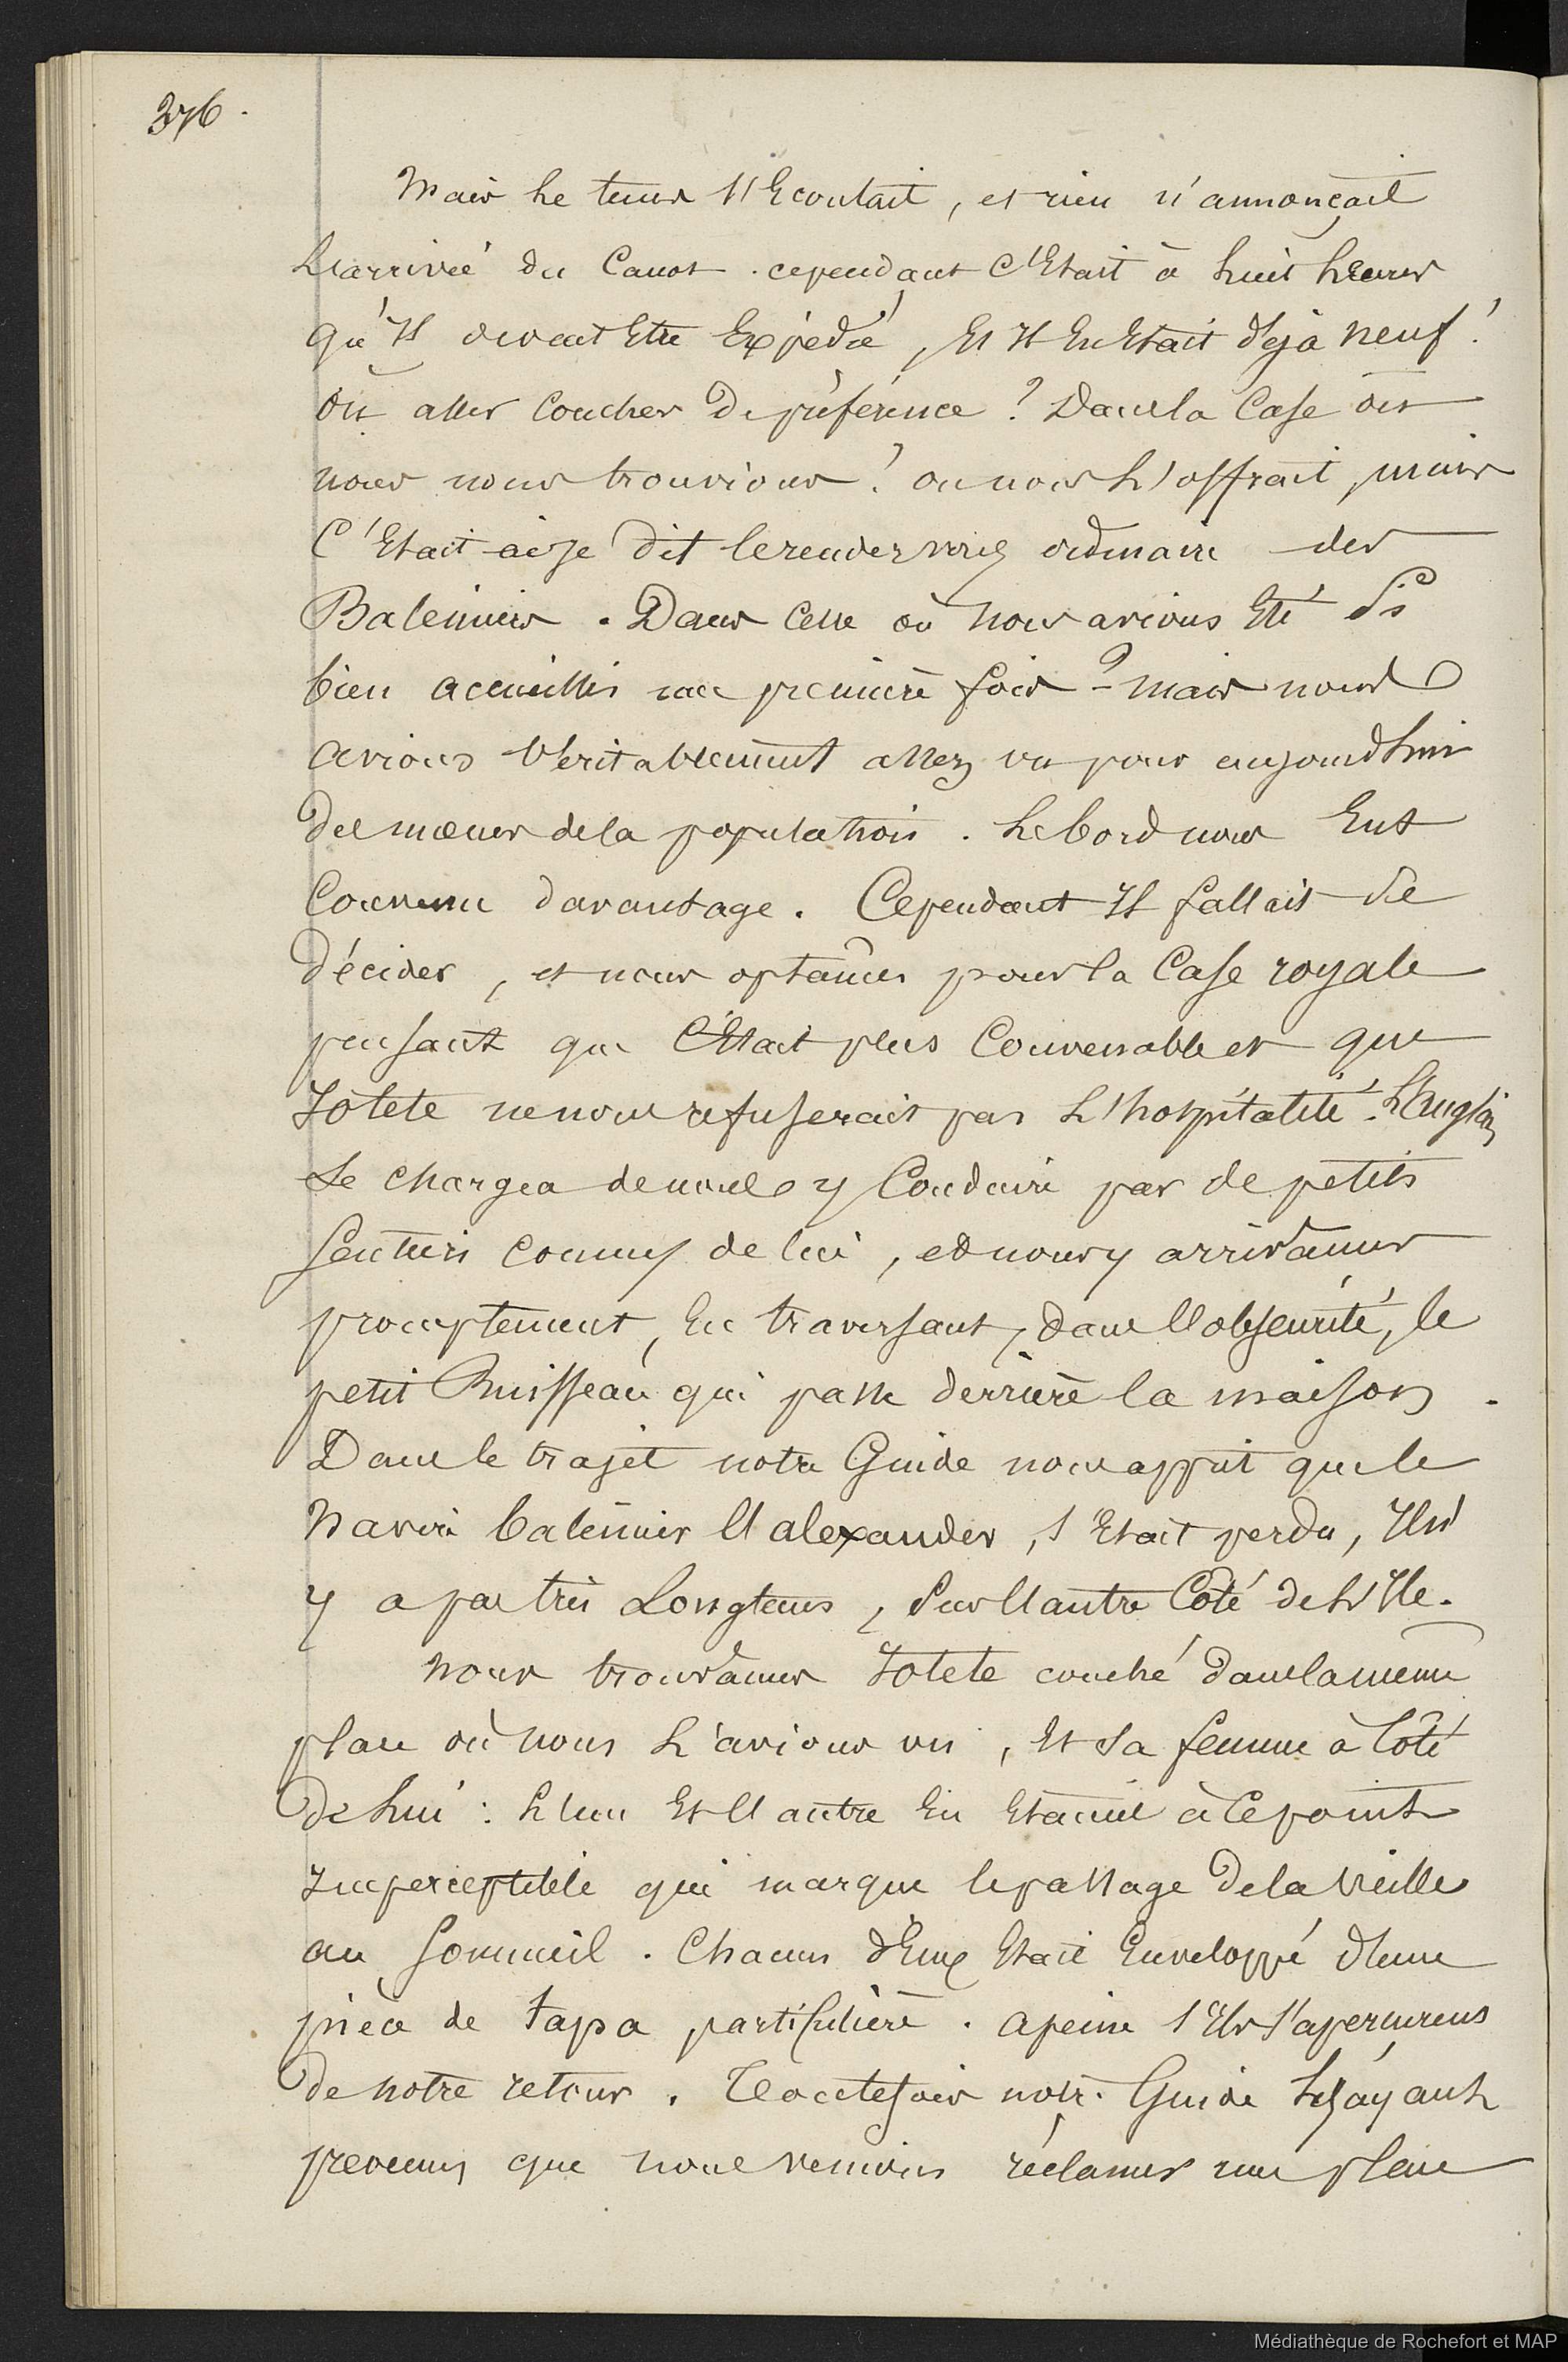 376.
Mais le tems s'Ecoulait, et rien n'annonçait
L'arrivée du Canot. cependant c'Etait à huit heures
qu'Il devait Etre Expédié, Et Il En Etait déjà neuf!
Où aller coucher De préférence? Dans la Case où
nous nous trouvions? on nous L'offrait, mais
C'Etait ai-je dit le rendez vous ordinaire des
Baleiniers. Dans celle où nous avions Eté Si
bien accueillis une première fois? - mais nous
avions Veritablement assez vu pour aujourdhui
des mœurs de la population. Le bord nous Eut
Convenu davantage. Cependant Il fallait Se
décider, et nous optâmes pour la Case royale
pensant que C'Etait plus Convenable et que
Iotete ne nous refuserait pas L'hospitalité. L'Anglais
Se chargea de nous y Conduire par de petits
Sentiers connus de lui, et nous y arrivâmes
promptement, En traversant, dans l'obscurité, le
petit Ruisseau qui passe derrière la maison.
Dans le trajet notre Guide nous apprit que le
Navire baleinier l'alexander, s'Etait perdu, Il n'
y a pas très Longtems, Sur l'autre Côté de L'Ile.
Nous trouvâmes Iotete couché dans la même
place où nous L'avions vu, Et Sa femme à Côté
de Lui: L'un Et l'autre En Etaient à Ce point
Imperceptible qui marque le passage De la Veille
au Sommeil. Chacun d'Eux Etait Enveloppé d'une
pièce de tapa particulière. apeine s'Ils s'aperçurent
de notre retour. Toutefois notre Guide Les ayant
prevenus que nous venions réclamer une place
Médiathèque de Rochefort et MAP